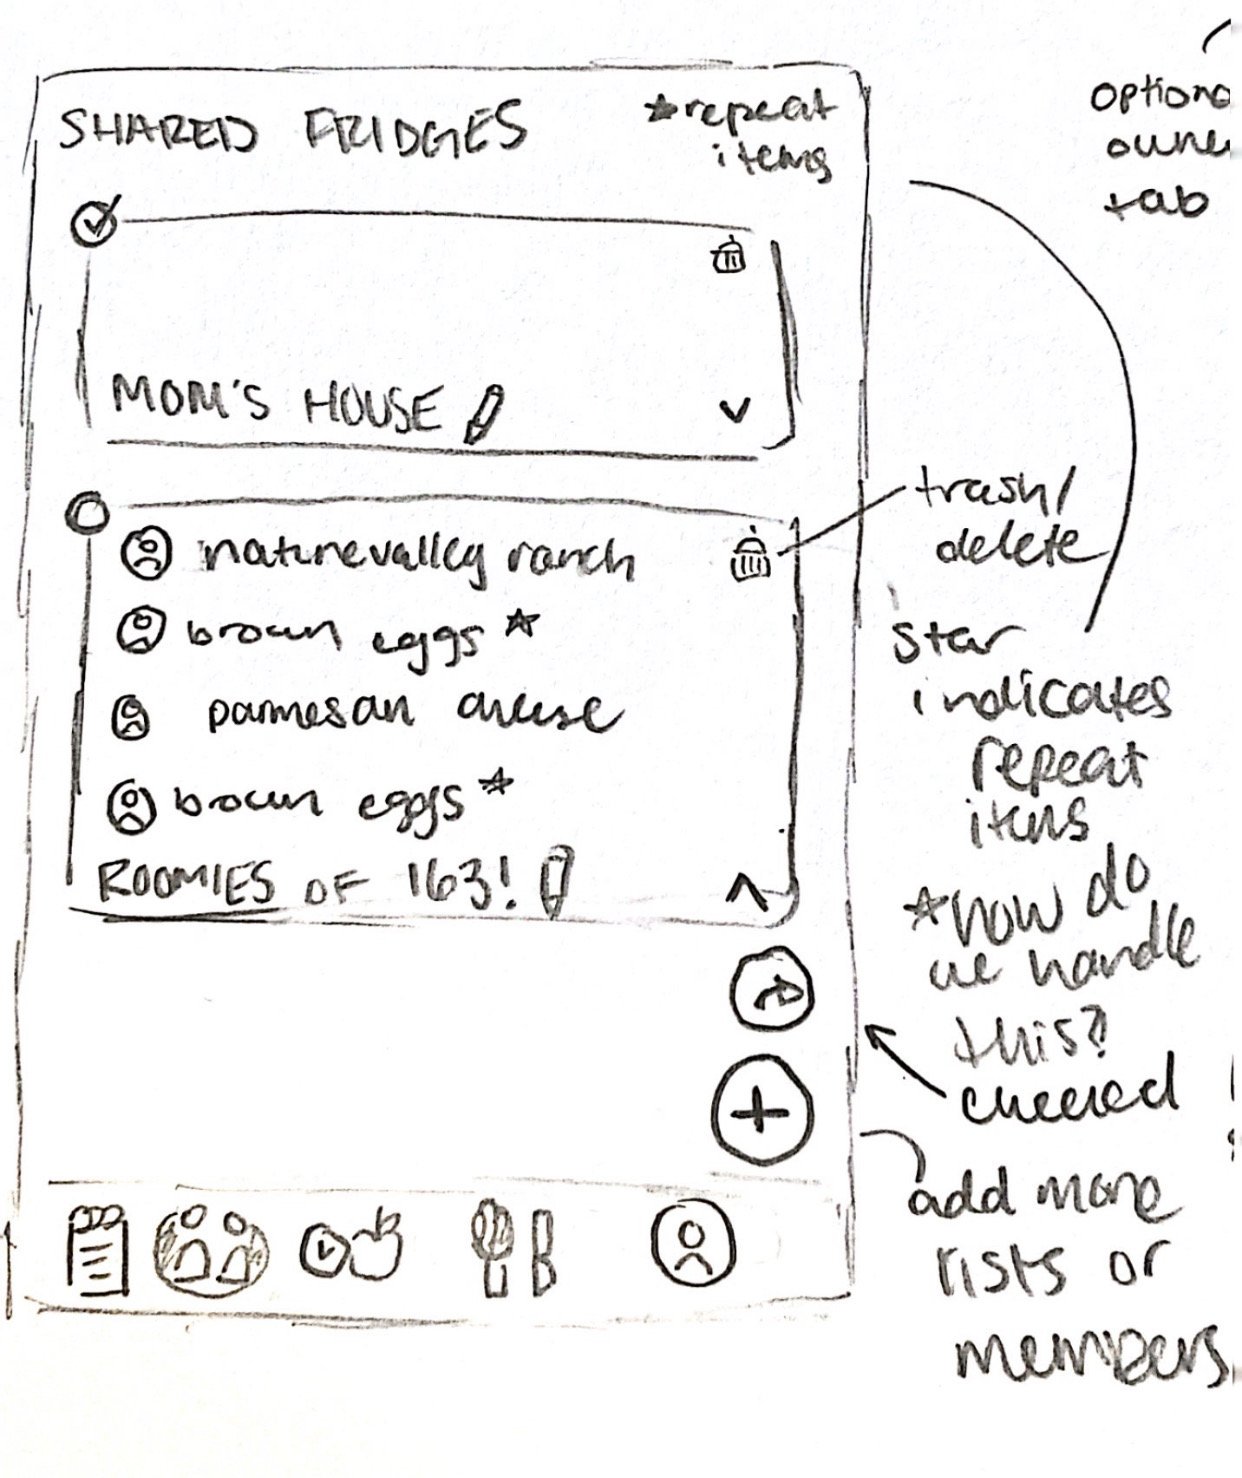 SHARED FRIDGES
★repeat
items
MOM'S HOUSE
naturevalley ranch
brown eggs ★
parmesan cheese
brown eggs ★
ROOMIES OF 163!
optiona
owne
tab
trash/
delete
star
indicates
repeat
items
★how do
we handle
this?
add more
lists or
members